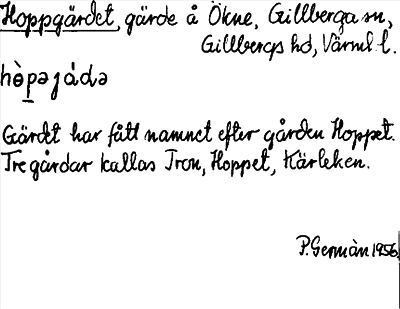 Hoppgärdet, gärde å Ökne, Gillberga sn,
Gillbergs hd, Värml. l.
hɵ̀pəjáḍə
Gärdet har fått namnet efter gården Hoppet.
Tre gårdar kallas Tron, Hoppet, Kärleken.
P. Germàn 1956.